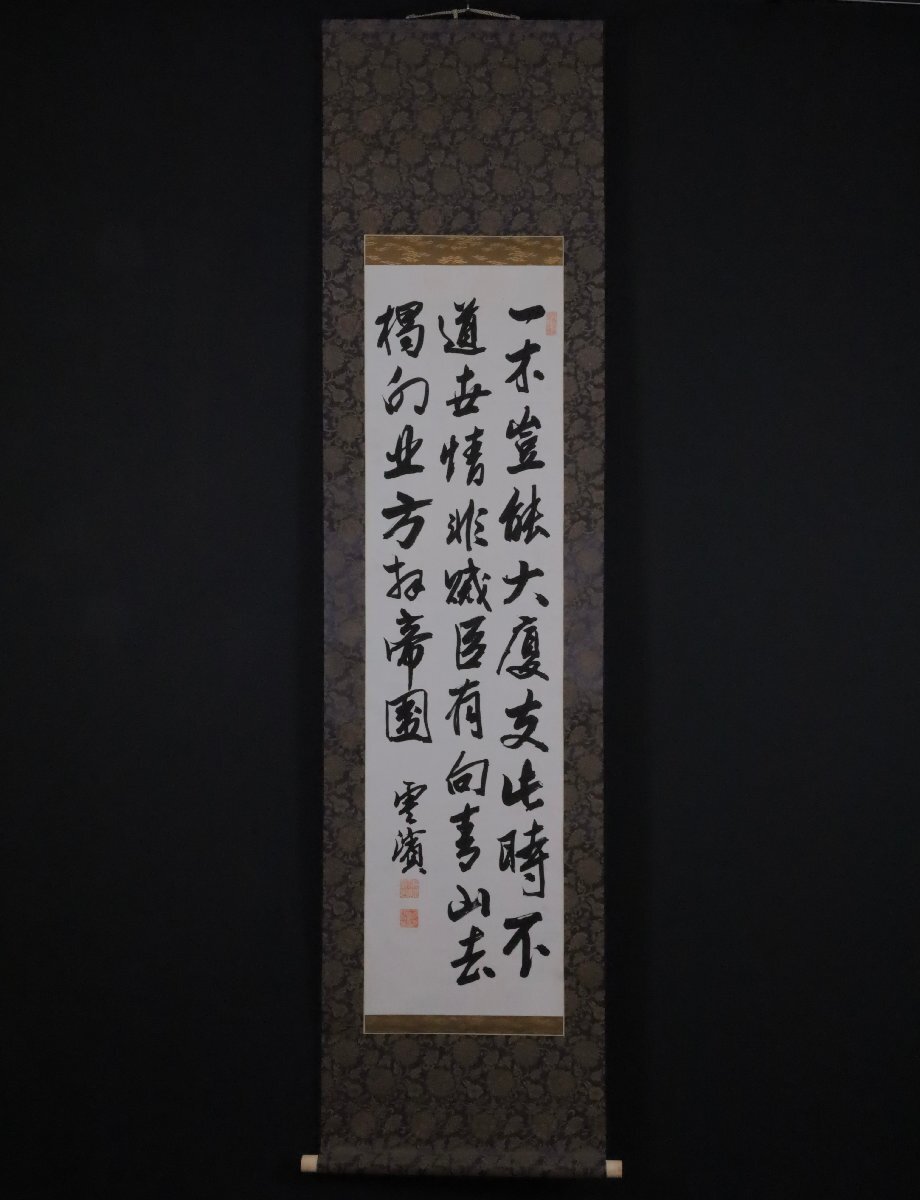 一木豈能大廈支此時不
道世情非賊臣有向青山去
獨向北方拜帝圍
雲濱